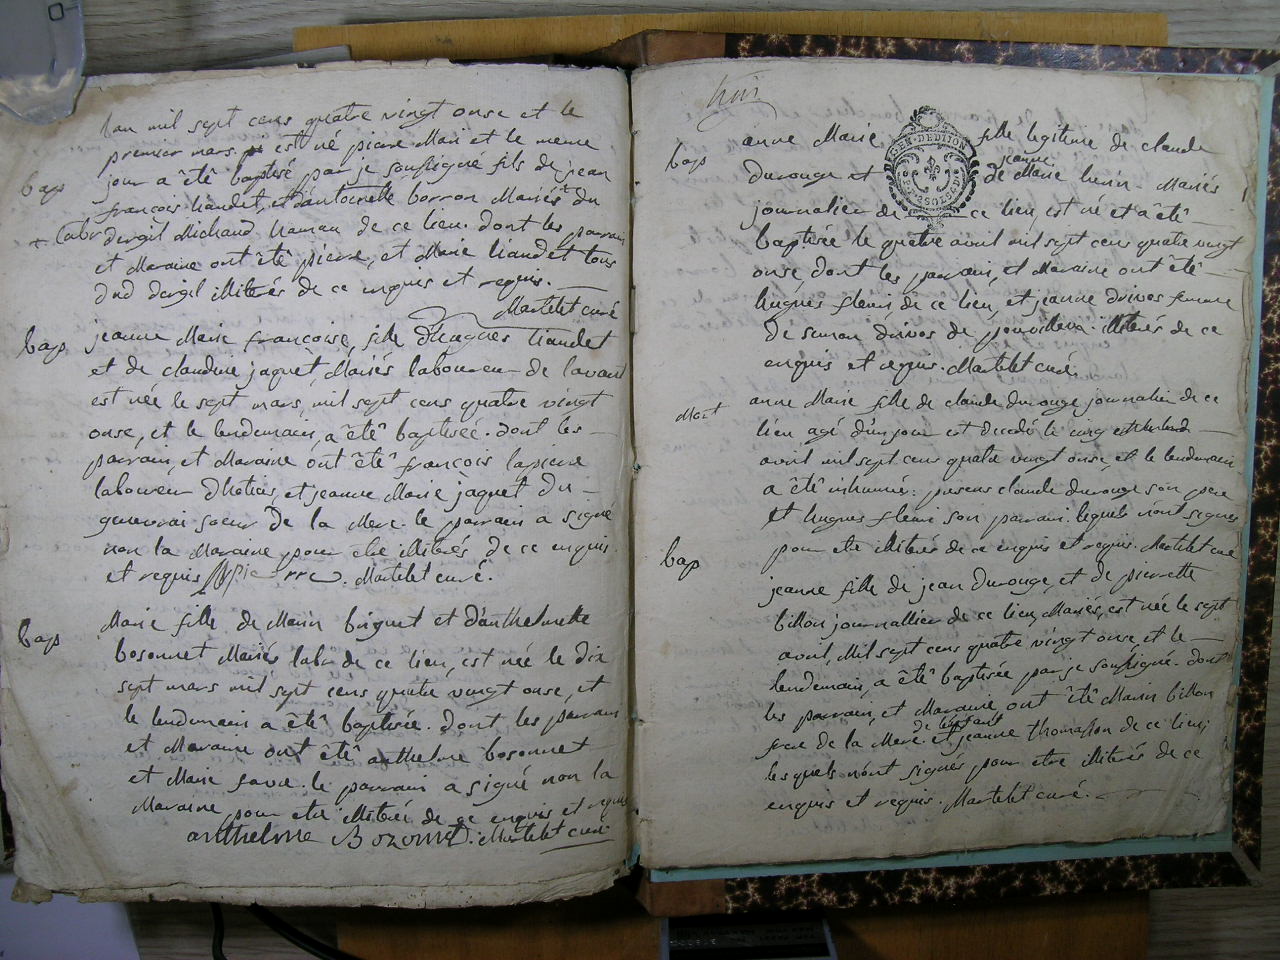 lan mil sept cens quatre vingt onse et le
premier mars est né piere Mari et le meme
bap jour a êtê baptisé par je soussigné fils de jean
françois liandet, et d'antoinette borron Mariés du
+ labr dergil Michaud hameau de ce lieu. dont les parrain
et Maraine ont êtê pierre, et Marie liandet tous
dud dergil illiterés de ce enquis et requis.
Martelet curé
bap jeanne Marie françoise, fille d'heugues liandet
et de claudine jaquet, Mariés laboureur de lavand
est née le sept mars, mil sept cens quatre vingt
onse, et le lendemain, a êtê baptiséé. dont les
parrain, et Maraine ont êtê françois lapierre
laboureur et jeanne Marie jaquet du
soeur de la Mere. le parrain a signé
non la Maraine pour etre illiterés de ce enquis
et requis lapierre. Martelet curé.
bap Marie fille de Marin briguet et d'anthelmette
bosonnet Mariés labr de ce lieu, est née le dix
sept mars mil sept cens quatre vingt onse, et
le lendemain a êtê baptisée. dont les parrain
et Maraine ont êtê anthelme bosonnet
et Marie favre. le parrain a signé non la
Maraine pour etre illiteré de ce enquis et requis
anthelme Bozonnet. Martelet curé.
trois
GEN. DE DIJON
bap anne Marie fille legitime de claude
durouge et de Marie jeanne Mariés
journalier de ce lieu, est né et a êtê
baptisée le quatre avril mil sept cens quatre vingt
onse, dont les parrain, et Maraine ont êtê
hugues fleuri, de ce lieu, et jeanne drivos femme
de simon drivos de illiterés de ce
enquis et requis. Martelet curé.
Mort anne Marie fille de claude durouge journalier de ce
lieu agé d'un jour est decedé le cinq
avril mil sept cens quatre vingt onse, et le lendemain
a êtê inhumée: presens claude durouge son pere
et hugues fleuri son parrain. lequels n'ont signes
pour etre illiterés de ce enquis et requis. Martelet curé
bap jeanne fille de jean durouge, et de pierrette
billon journallier de ce lieu, Mariés, est née le sept
avril, Mil sept cens quatre vingt onse, et le
lendemain, a êtê baptisée par je soussigné. dont
les parrain, et Maraine ont êtê Marin billon
frere de la Mere de l'enfant et jeanne thomasson de ce lieu,
lesquels n'ont signes pour etre illiterés de ce
enquis et requis. Martelet curé.